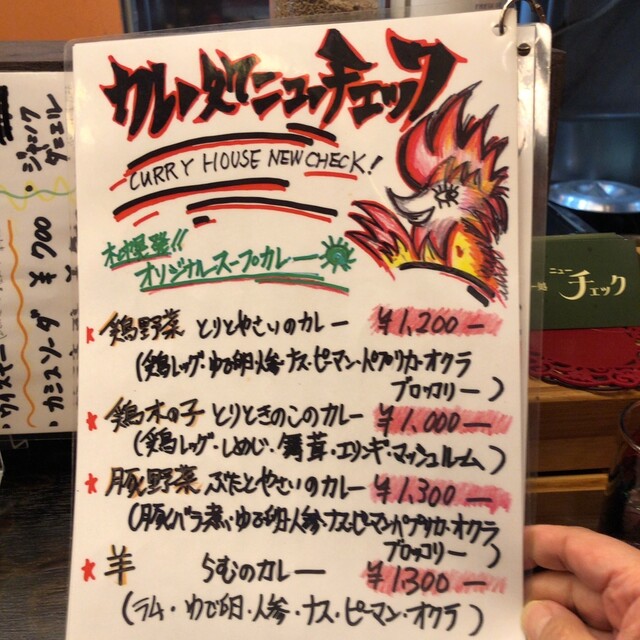 カレー処ニューチェック
CURRY HOUSE NEW CHECK!
オリジナルスープカレー
鶏野菜 とりとやさいのカレー ¥1,200ー
(鶏レッグ・ゆで卵・人参・ナス・ピーマン・パプリカ・オクラ
ブロッコリー)
鶏木の子 とりときのこのカレー ¥1,000ー
(鶏レッグ・しめじ・舞茸・エリンギ・マッシュルーム)
豚野菜 ぶたとやさいのカレー ¥1,300ー
(豚バラ煮・ゆで卵・人参・ナス・ピーマン・パプリカ・オクラ
ブロッコリー)
羊 らむのカレー ¥1300ー
(ラム・ゆで卵・人参・ナス・ピーマン・オクラ)
・ジャックダニエル
・ウイスキー
・カシスソーダ ¥700
ニュー
チェック